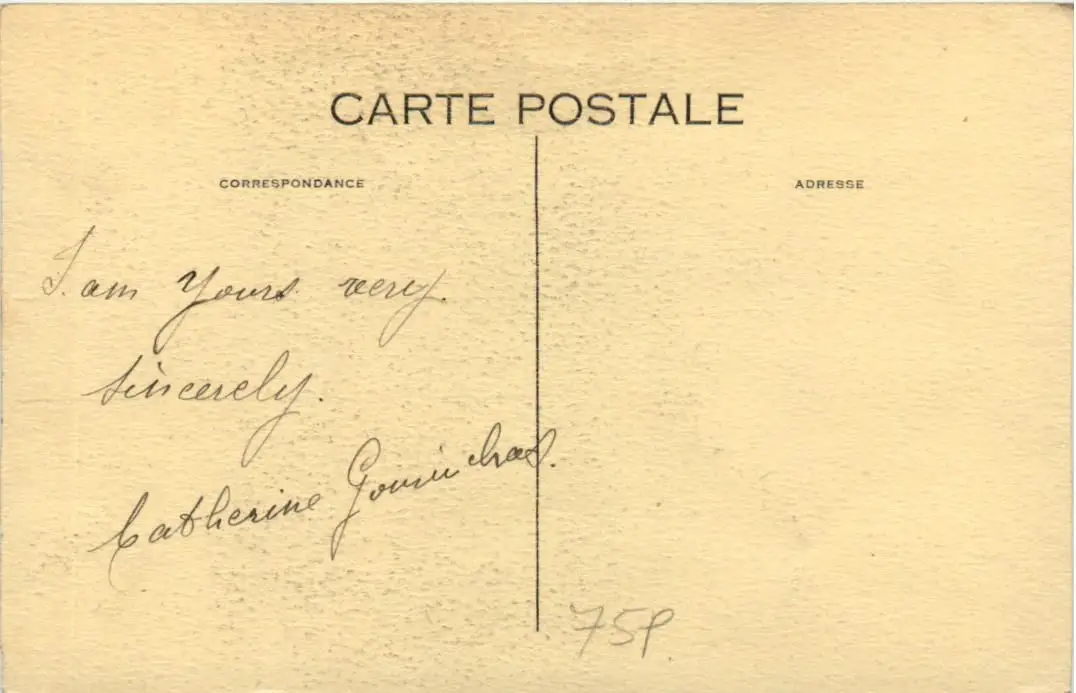 CARTE POSTALE
CORRESPONDANCE
ADRESSE
I am yours very.
sincerely.
Catherine
75P